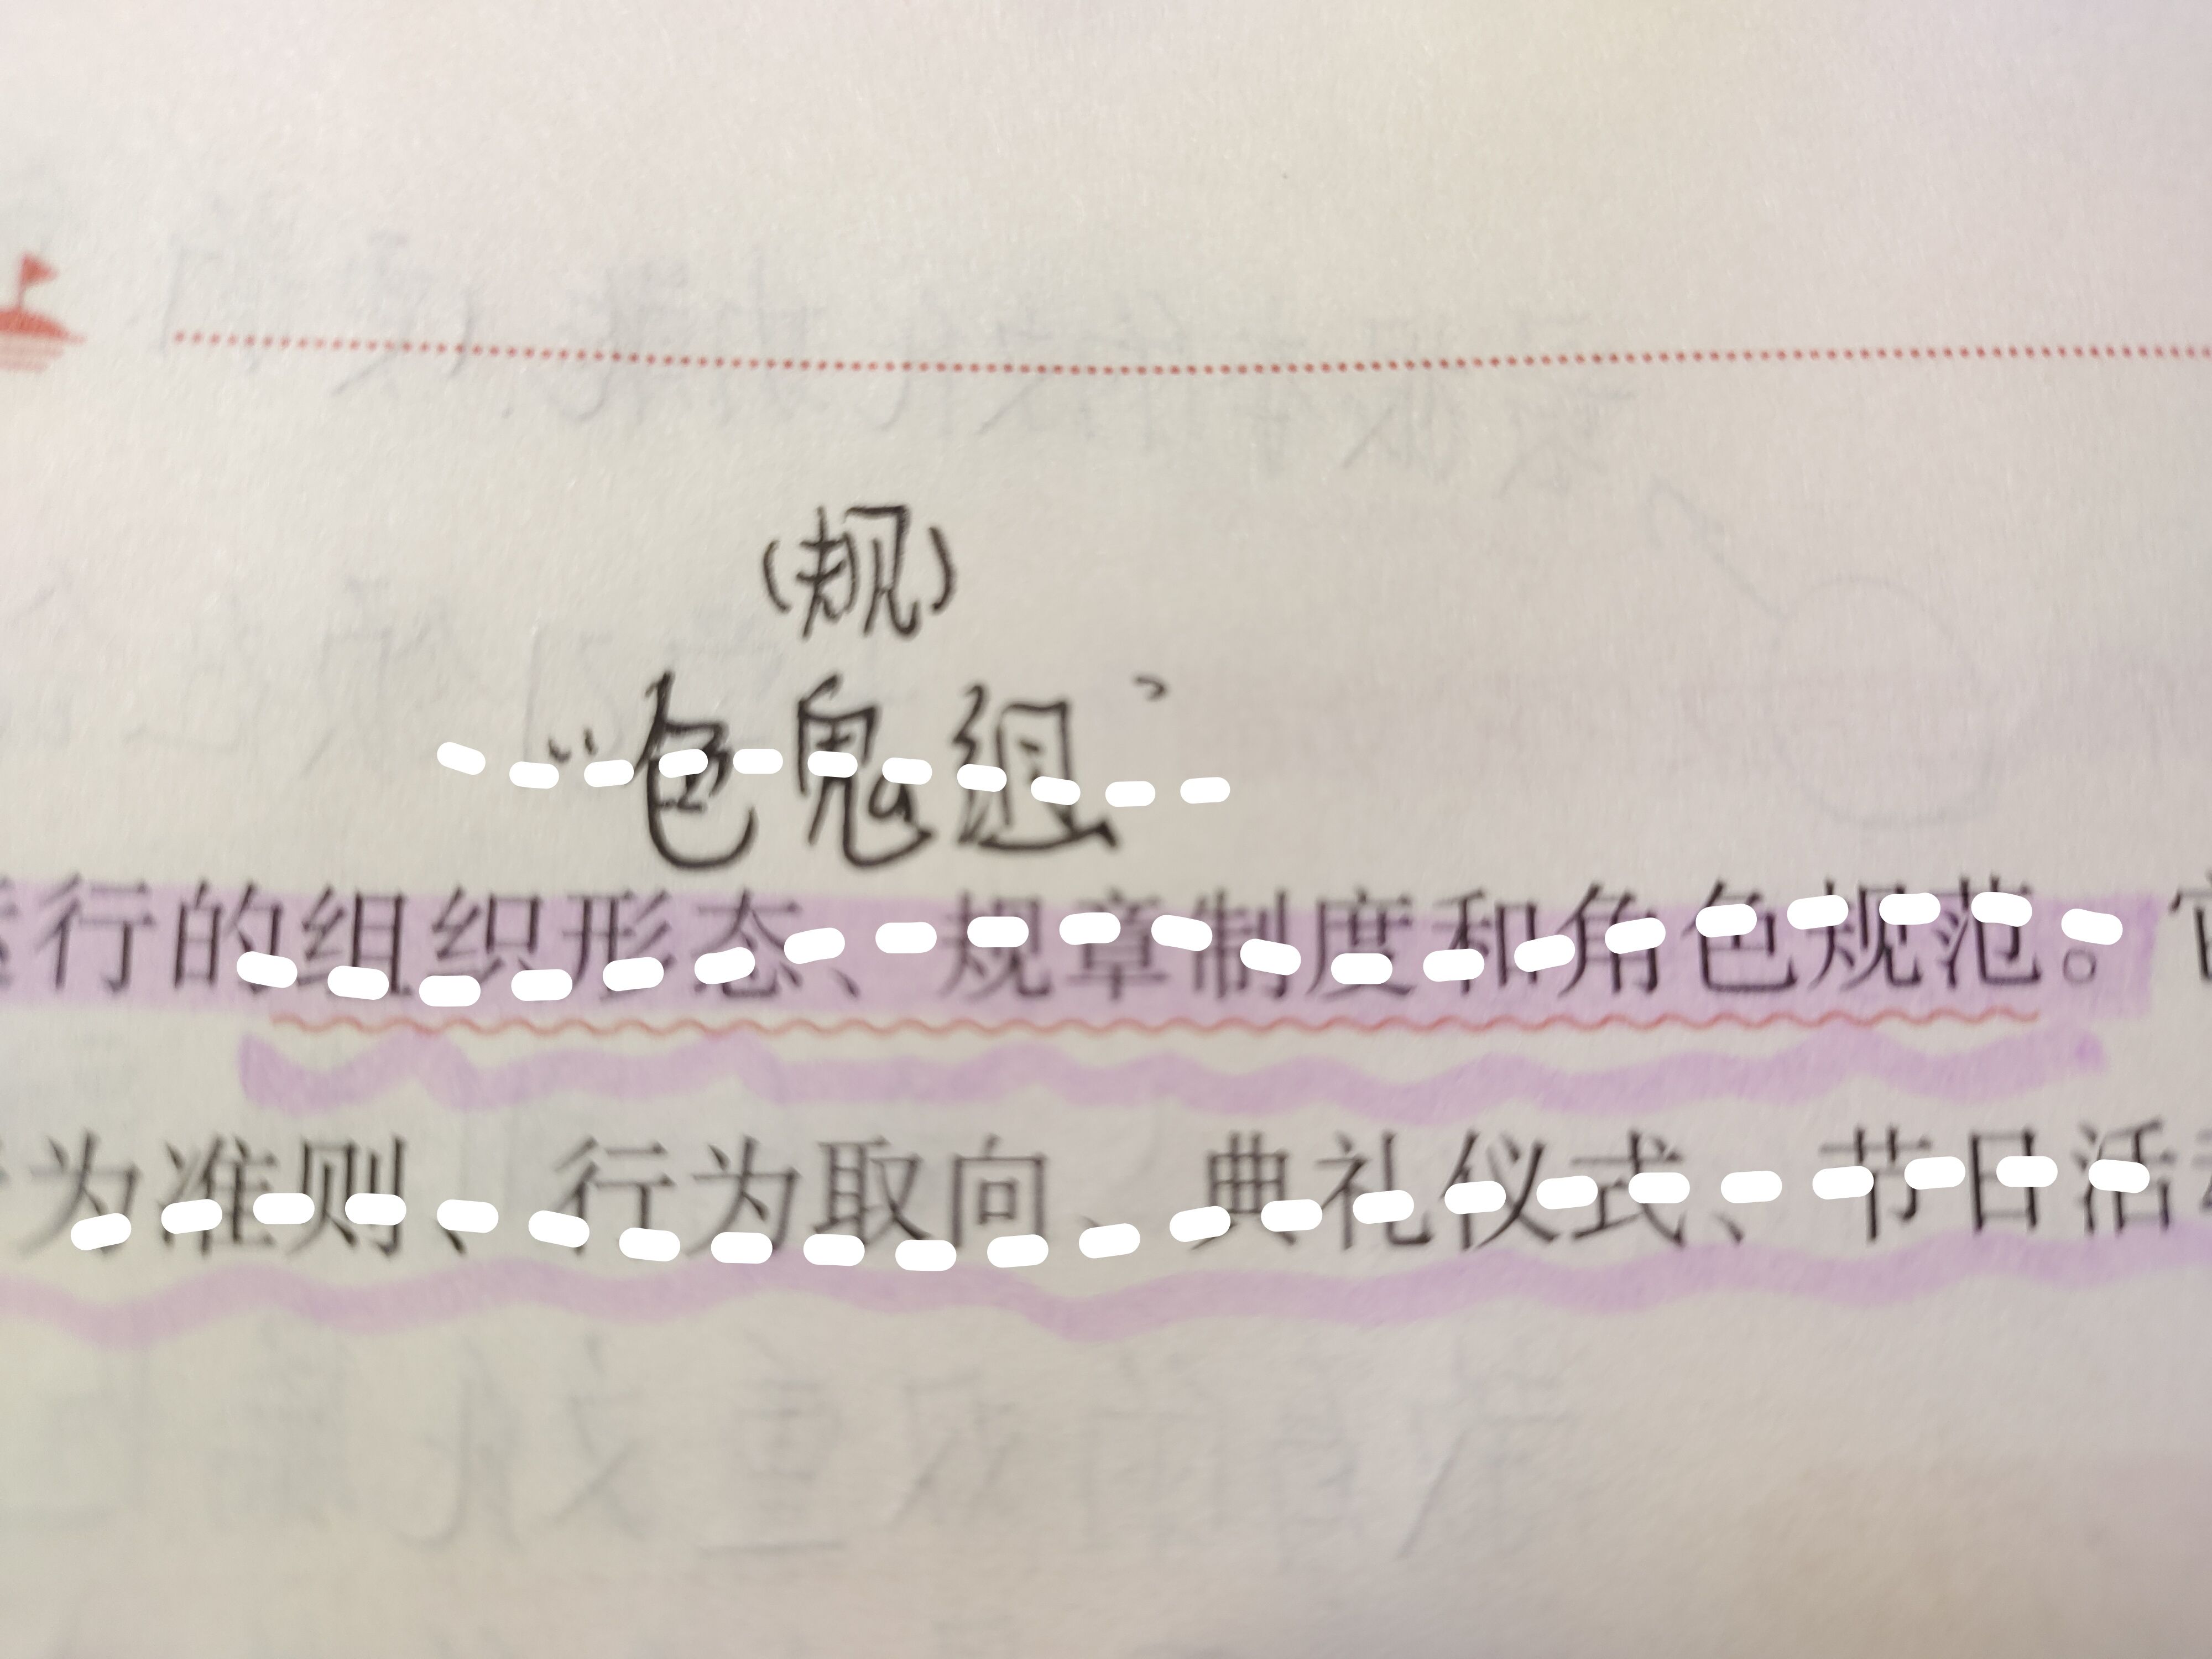 (规)
“色鬼组”
运行的组织形态、规章制度和角色规范。它
为准则、行为取向、典礼仪式、节日活